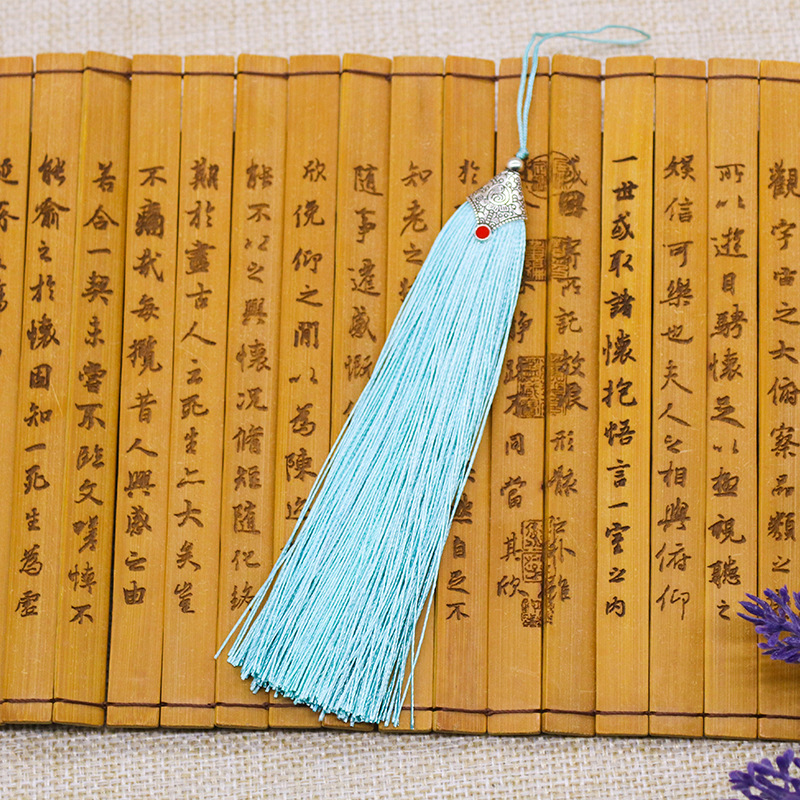 觀宇宙之大俯察品類之
所以遊目騁懷足以極視聽之
娛信可樂也夫人之相與俯仰
一世或取諸懷抱悟言一室之內
或因寄所託放浪形骸之外雖
靜躁不同當其欣
於然自足不
知老之
隨事遷感慨
欣俛仰之閒以為陳迹
能不以之興懷況脩短隨化終
期於盡古人云死生亦大矣豈
不痛哉每攬昔人興感之由
若合一契未嘗不臨文嗟悼不
能喻之於懷固知一死生為虛